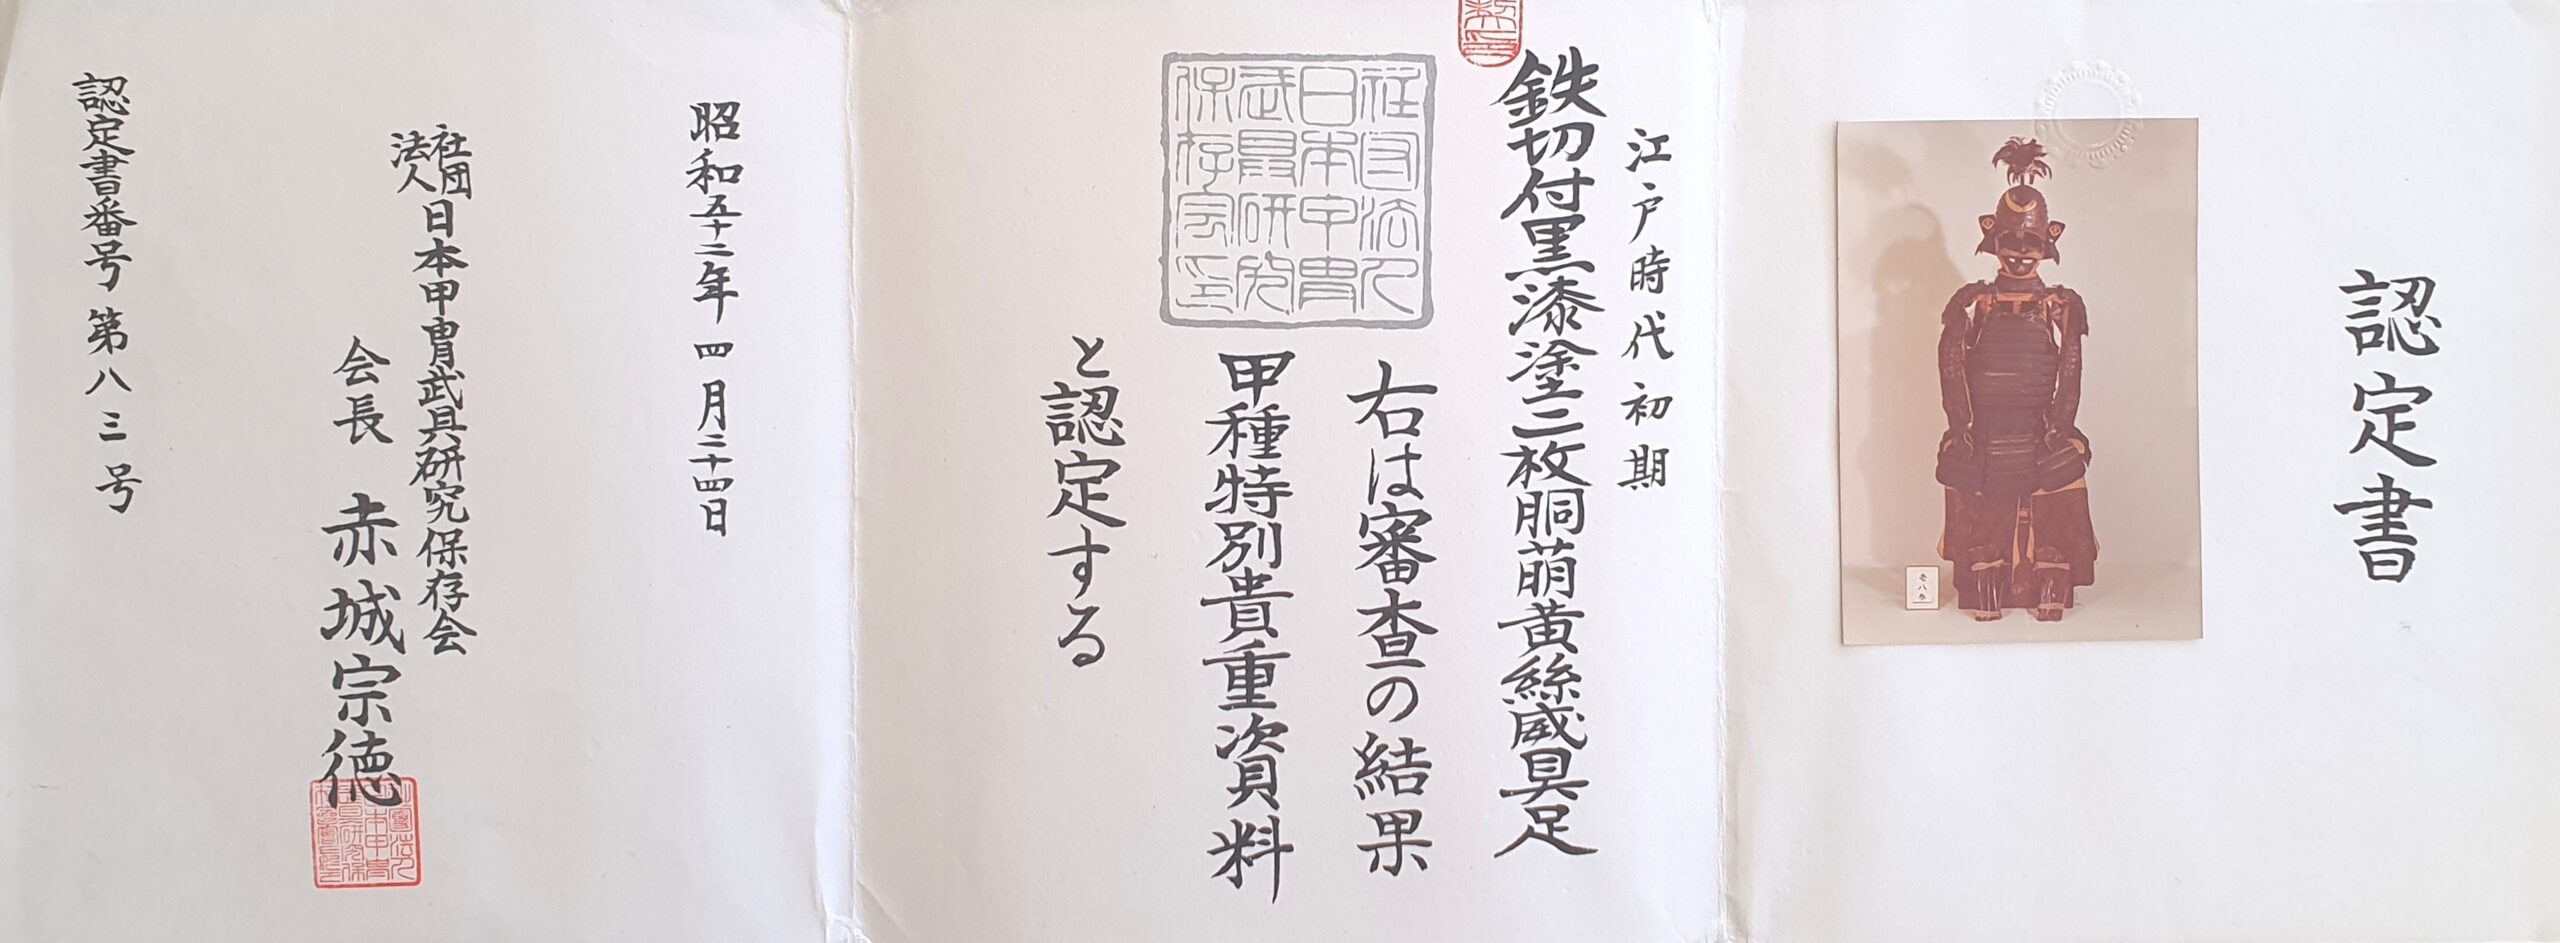 認定書
江戸時代初期
鉄切付黒漆塗二枚胴萌黄絲威具足
社団法人
日本甲冑
武具研究
保存会印
右は審査の結果
甲種特別貴重資料
と認定する
昭和五十二年 四月二十四日
社団法人 日本甲冑武具研究保存会
会長 赤城宗徳
認定書番号 第八三号